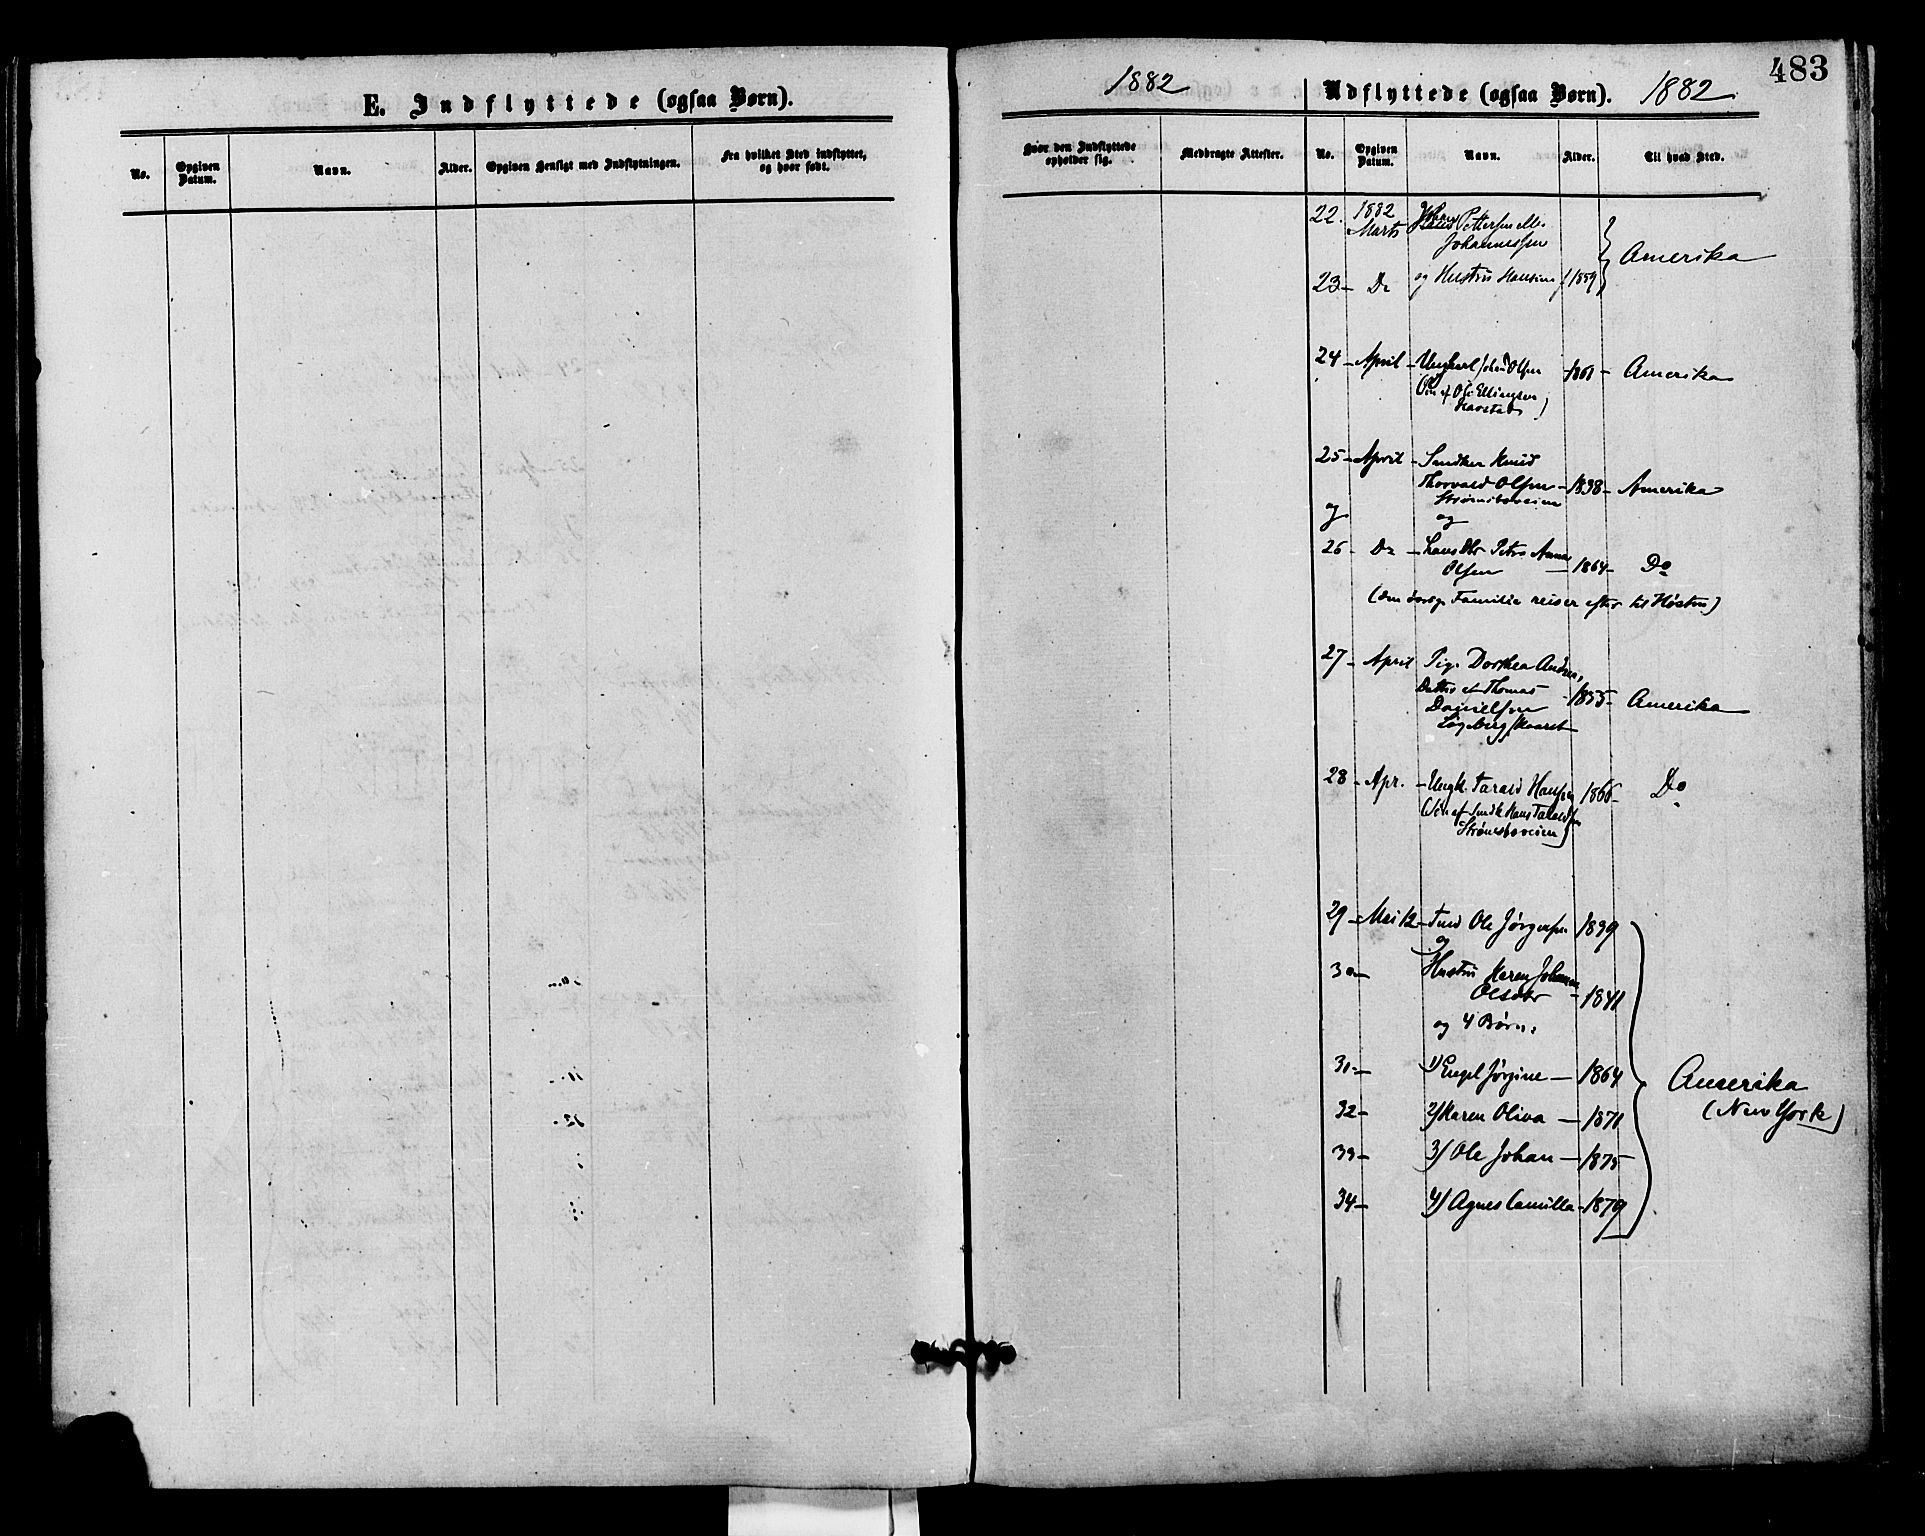 E. Indflyttede (ogsaa Børn).
No.
Opgiven Datum.
Navn.
Alder.
Opgiven Hensigt med Indflytningen.
Fra hvilket Sted indflyttet, og hvor født.
483
1882
Udflyttede (ogsaa Børn). 1882
Hvor den Indflyttede opholder sig.
Medbragte Attester.
No.
Opgiven Datum.
Navn.
Alder.
Til hvad Sted.
22. 1882 Marts Pettersen
Johannessen
Amerika
23 - Do og Hustru Hansine f. 1859
24 - April - Ungkarl Johan Olsen - 1861 - Amerika
(Søn af Ole Ellingsen
25 - April - Smdker Knud
Thorvald Olsen - 1838 - Amerika
Strømsboveien
og og
26 - Do - hans Dtr Petra Anna
Olsen - 1864 - Do
(den øvrige Familie reiser efter til Høsten)
27 - April Pige Dorthea Andrea,
Datter af Thomas - 1855 - Amerika
Danielsen
Løgeberg skaaret
28 - Apr. - Ungk. Tarald Hansen 1866 - Do
(Søn af Smdk Hans Taraldsen
Strømsboveien)
29 - Mai 12 - Tmd Ole Jørgensen 1839
og
30 - Hustru Karen Johanne
Olsdtr - 1841
og 4 Børn:
31 - 1) Engel Jørgine - 1864
Amerika
32 - 2) Karen Oliva - 1871
(New York)
33 - 3) Ole Johan - 1875
34 - 4) Agnes Camilla - 1879